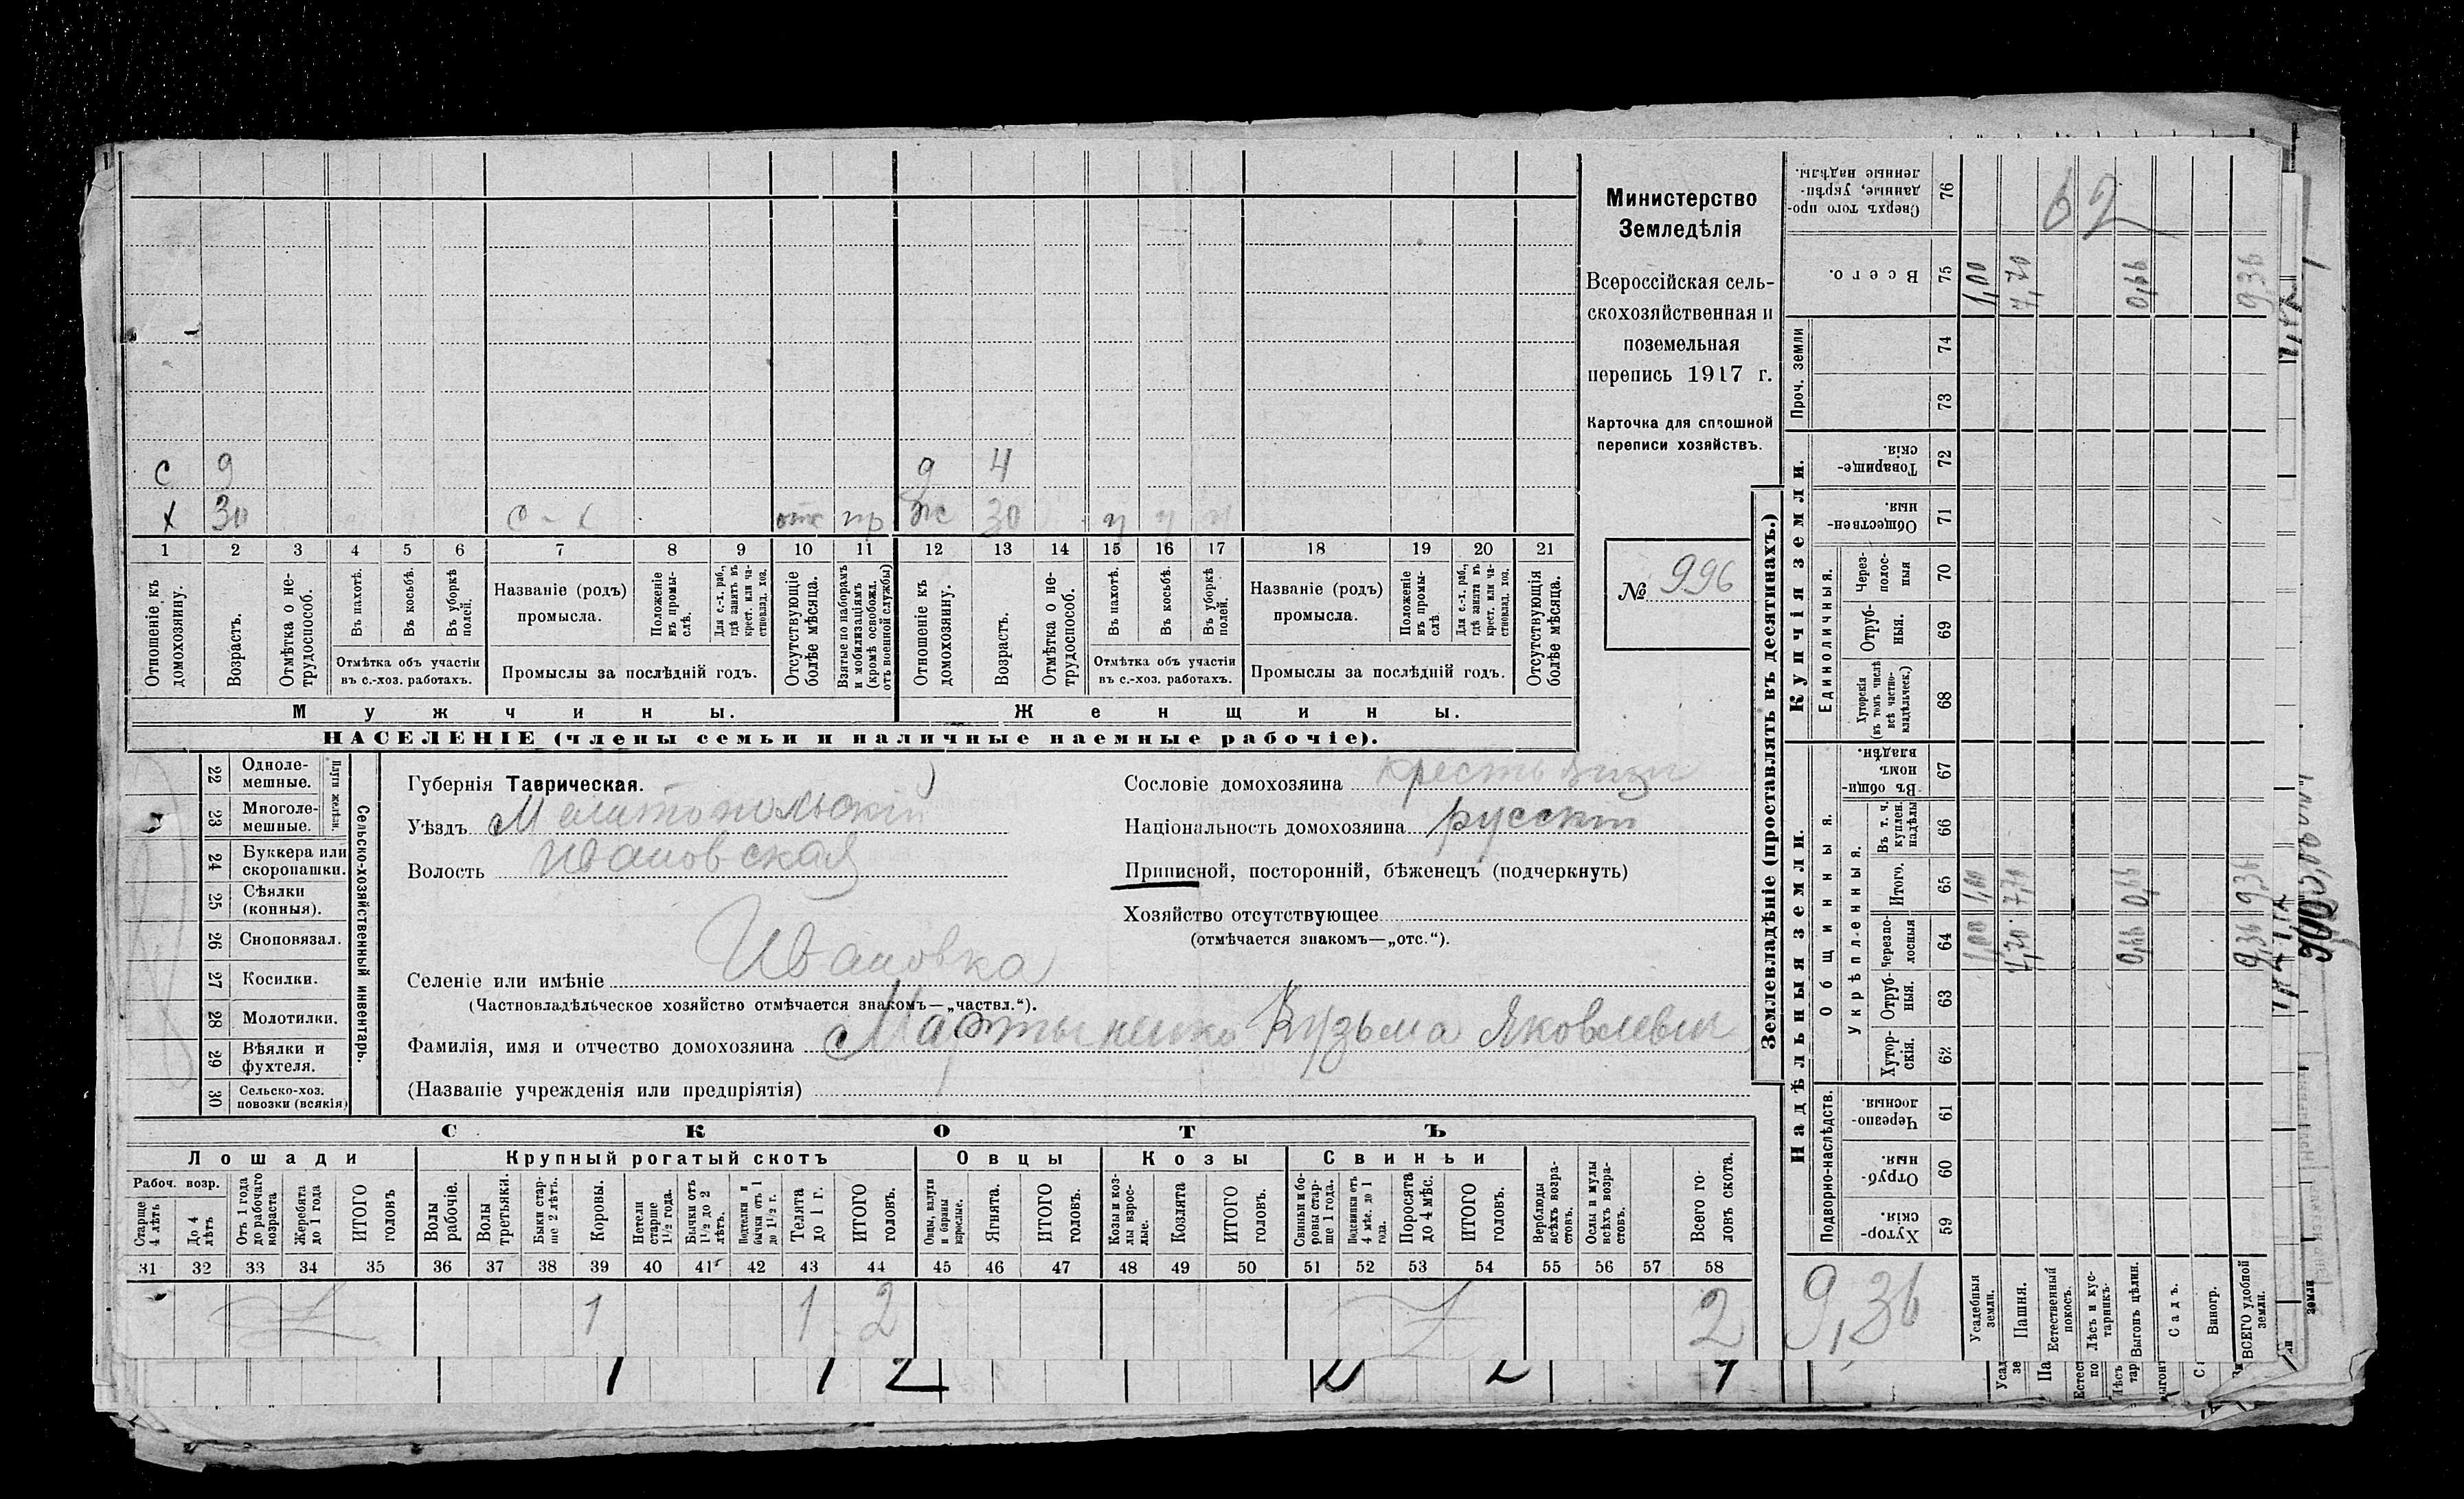 с 9 д 4
х 30 с-х отс пр ж 30 ч ч ч
1 2 3 4 5 6 7 8 9 10 11 12 13 14 15 16 17 18 19 20 21
Отношеніе къ домохозяину.
Возрастъ.
Отмѣтка о нетрудоспособ.
Въ пахотѣ.
Въ косьбѣ.
Въ уборкѣ полей.
Отмѣтка объ участіи
въ с.-хоз. работахъ.
Названіе (родъ)
промысла.
Положеніе въ промыслѣ.
Для с.-х. раб., гдѣ занятъ въ крест. или частновлад. хоз.
Промыслы за послѣдній годъ.
Отсутствующіе болѣе мѣсяца.
Взятые по наборамъ и мобилизаціямъ (кромѣ освобожд. отъ военной службы)
Отношеніе къ домохозяину.
Возрастъ.
Отмѣтка о нетрудоспособ.
Въ пахотѣ.
Въ косьбѣ.
Въ уборкѣ полей.
Отмѣтка объ участіи
въ с.-хоз. работахъ.
Названіе (родъ)
промысла.
Положеніе въ промыслѣ
Для с.-х. раб., гдѣ занята въ крест. или частновлад. хоз.
Промыслы за послѣдній годъ.
Отсутствующія болѣе мѣсяца.
Мужчины. Женщины.
НАСЕЛЕНІЕ (члены семьи и наличные наемные рабочіе).
Министерство
Земледѣлія
Всероссійская сель-
скохозяйственная и
поземельная
перепись 1917 г.
Карточка для сплошной
переписи хозяйствъ.
№ 996
22 Одноле-
мешные.
23 Многоле-
мешные.
Плуги желѣзн.
24 Буккера или
скоропашки.
25 Сѣялки
(конныя).
26 Сноповязал.
27 Косилки.
28 Молотилки.
29 Вѣялки и
фухтеля.
30 Сельско-хоз.
повозки (всякія)
Сельско-хозяйственный инвентарь.
Губернія Таврическая.
Уѣздъ Мелитопольскій
Волость Ивановская
Селеніе или имѣніе Ивановка
(Частновладѣльческое хозяйство отмѣчается знакомъ—„частвл.“).
Фамилія, имя и отчество домохозяина Мартыненко Кузьма Яковлевич
(Названіе учрежденія или предпріятія)
Сословіе домохозяина крестьянин
Національность домохозяина русскій
Приписной, посторонній, бѣженецъ (подчеркнуть)
Хозяйство отсутствующее
(отмѣчается знакомъ—„отс.“).
СКОТЪ
Лошади Крупный рогатый скотъ Овцы Козы Свиньи
Рабоч. возр.
Старше 4 лѣтъ
До 4 лѣтъ
Отъ 1 года до рабочаго возраста
Жеребята до 1 года
ИТОГО головъ
Волы рабочіе.
Волы третьяки.
Быки старше 2 лѣтъ.
Коровы.
Нетели старше 1½ года.
Бычки отъ 1½ до 2 лѣтъ.
Подтелки и бычки отъ 1 до 1½ г.
Телята до 1 г.
ИТОГО головъ.
Овцы, валухи и бараны взрослые.
Ягнята.
ИТОГО головъ.
Козы и козлы взрослые.
Козлята
ИТОГО головъ.
Свиньи и боровы старше 1 года.
Подсвинки отъ 4 мѣс. до 1 года.
Поросята до 4 мѣс.
ИТОГО головъ.
Верблюды всѣхъ возрастовъ.
Ослы и мулы всѣхъ возрастовъ.
Всего головъ скота.
31 32 33 34 35 36 37 38 39 40 41 42 43 44 45 46 47 48 49 50 51 52 53 54 55 56 57 58
1 1 2 2
1 1 2 2
Землевладѣніе (проставлять въ десятинахъ.)
Надѣльныя земли. Купчія земли.
Подворно-наслѣдств.
Общинныя.
Укрѣпленныя.
Единоличныя.
Проч. земли
Хуторскія. 59
Отрубныя. 60
Черезполосныя. 61
Хуторскія. 62
Отрубныя. 63
Черезполосныя 64
Итого. 65
Въ т. ч. куплен. надѣлы 66
Въ общинномъ владѣн. 67
Хуторскія (въ томъ числѣ всѣ частновладѣльческ.) 68
Отрубныя. 69
Черезполосныя 70
Общественныя. 71
Товарищескія. 72
73
74
Всего. 75
Сверхъ того проданные, укрѣпленные надѣлы. 76
62
9,36
Усадебныя земли. 1,00 1,00 1,00
Пашня. 7,70 7,70 7,70
Естественный покосъ.
Лѣсъ и кустарникъ.
Выгонъ цѣлин. 0,66 0,66 0,66
Садъ.
Виногр.
ВСЕГО удобной земли. 9,36 9,36 9,36